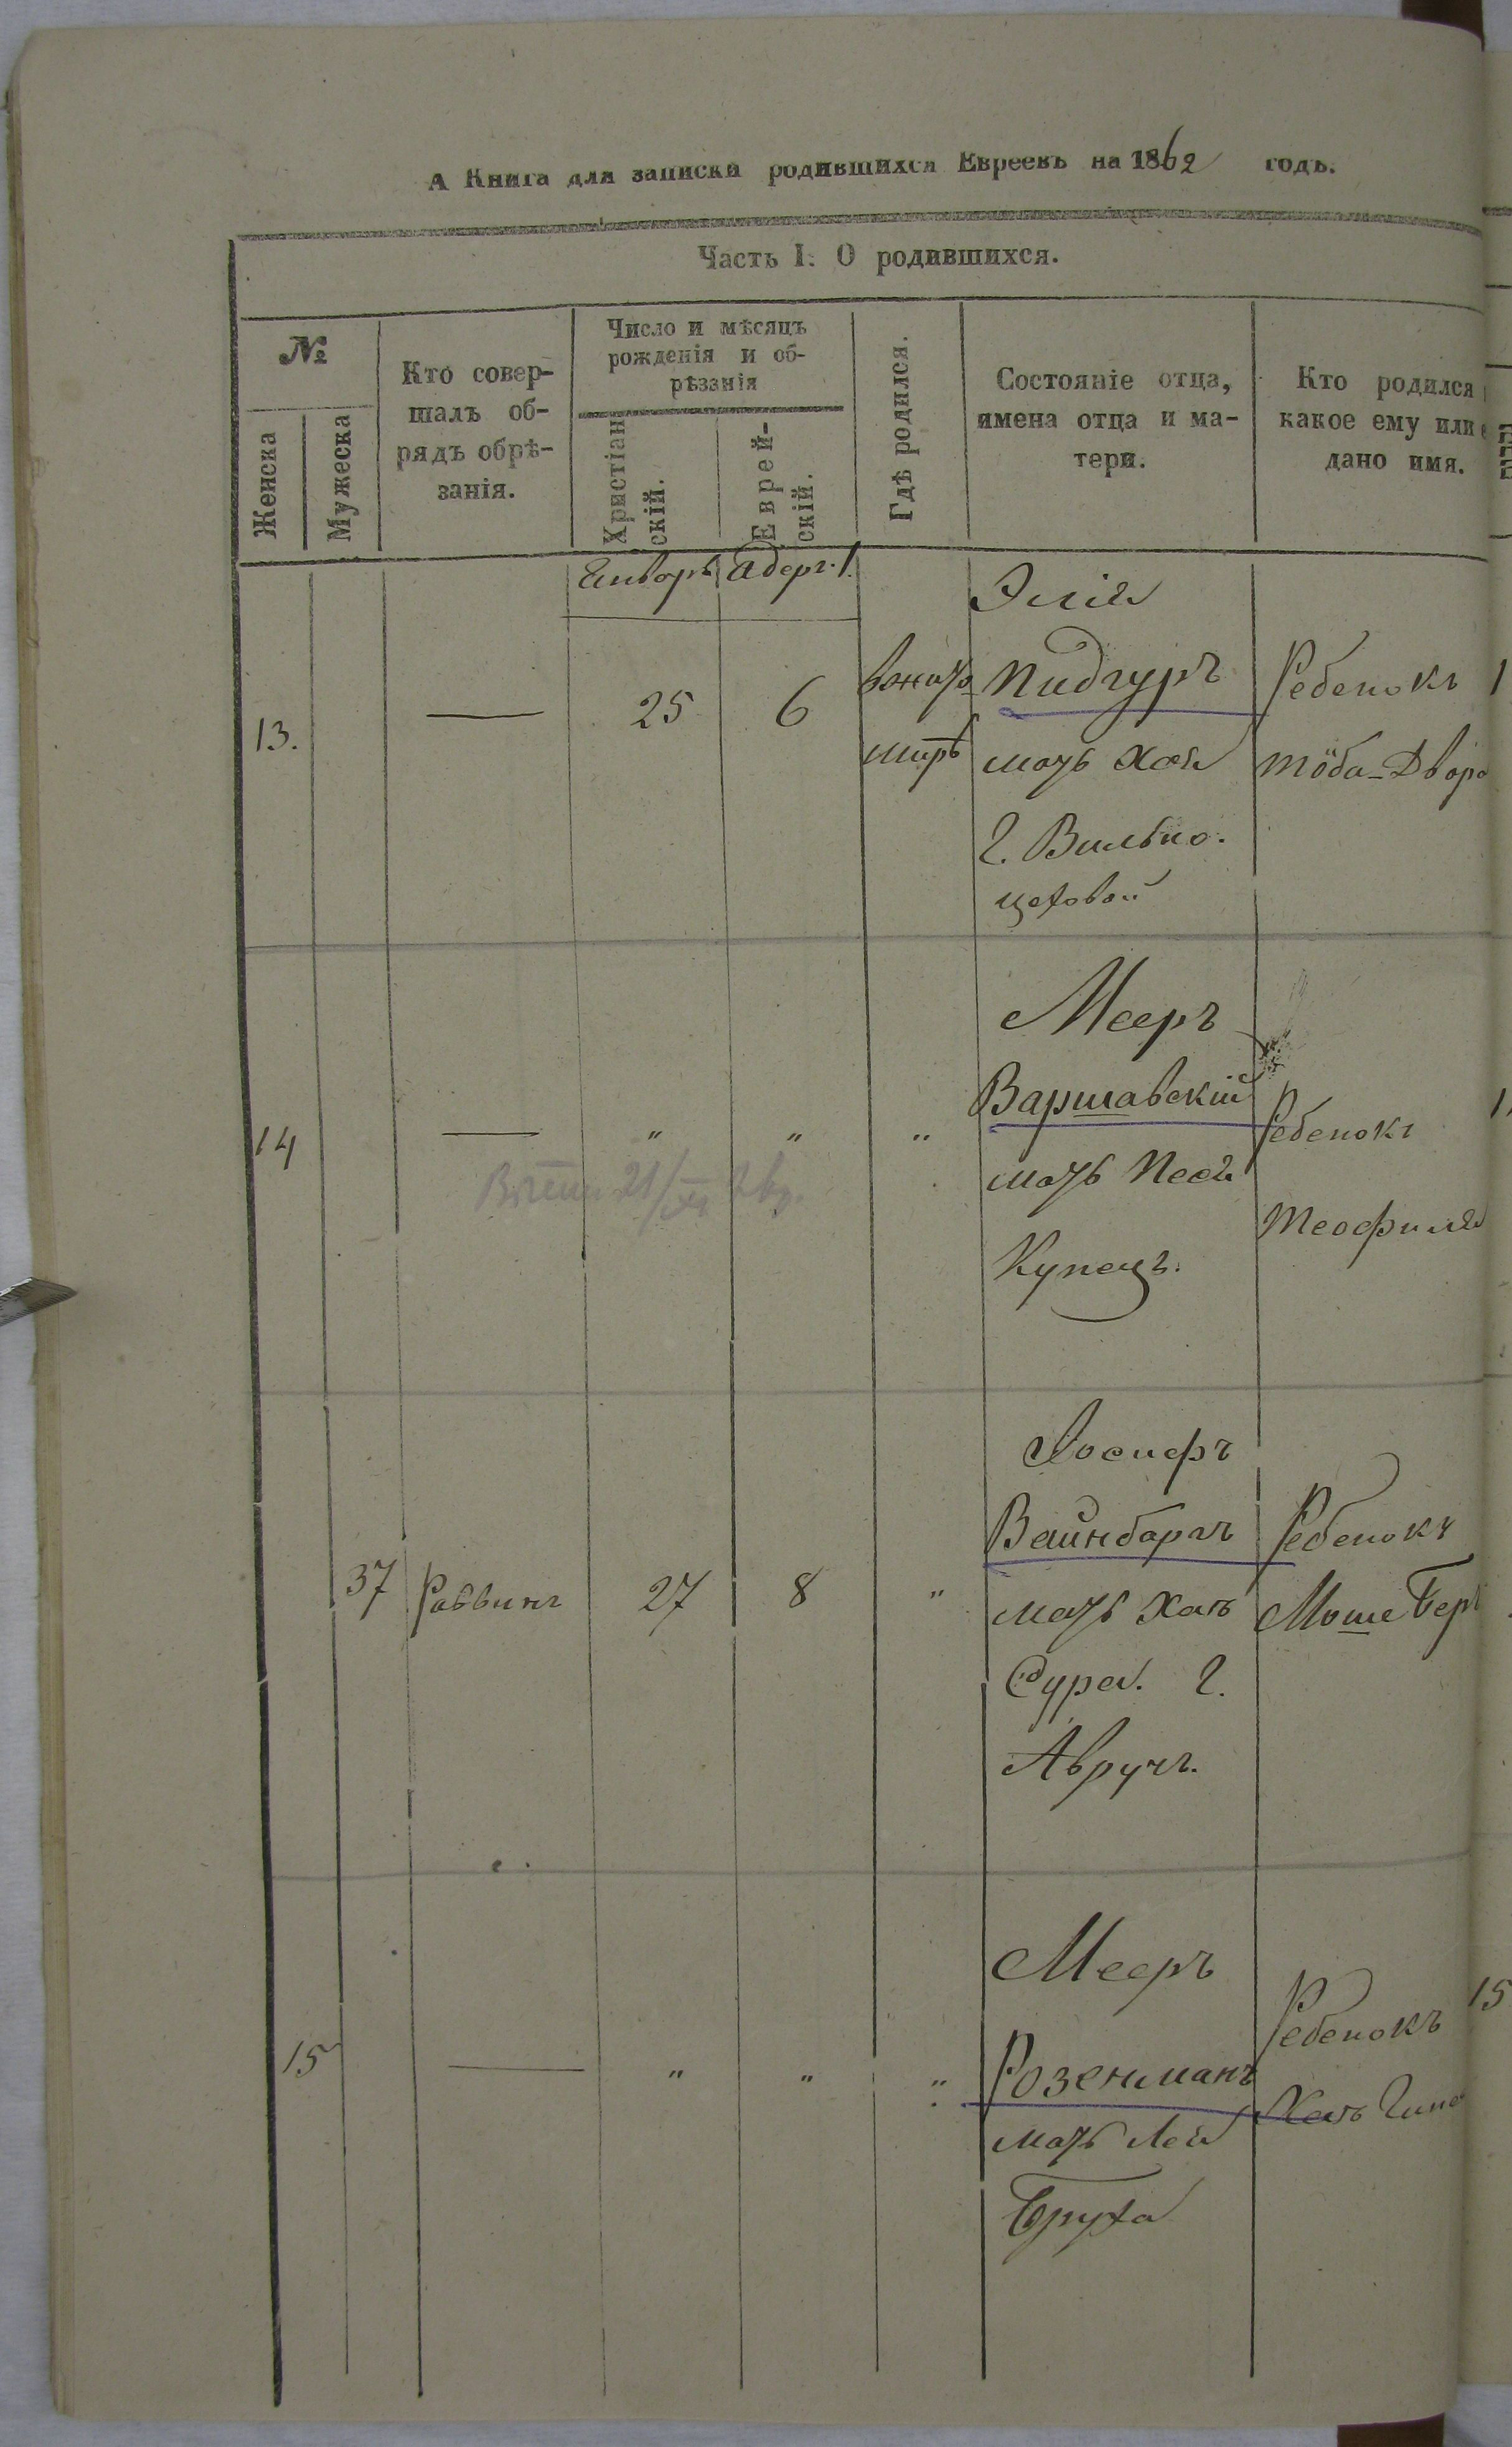 А Книга для записки родившихся Евреевъ на 1862 годъ.
Часть I. О родившихся.
№
Женска
Мужеска
Кто совер-
шалъ об-
рядъ обрѣ-
занія.
Число и мѣсяцъ
рожденія и об-
рѣзанія
Христіан
скій.
Еврей-
скій.
Гдѣ родился.
Состояніе отца,
имена отца и ма-
тери.
Кто родился
какое ему или
дано имя.
Январь
Адеръ 1.
13.
—
25
6
вжито
миръ
Элія
Пидгуръ
мать Хая
г. Вильно.
цеховой
Ребенокъ
Тоба-Двора
14
—
"
"
"
Мееръ
Варшавскій
мать Песя
Купецъ.
Ребенокъ
Теофиля
37
Раввинъ
27
8
"
Іосифъ
Вайнбаргъ
мать Хая
Сура. г.
Авручъ.
Ребенокъ
Моше Беръ
15
—
"
"
"
Мееръ
Розенманъ
мать Лея
Бруха
Ребенокъ
15